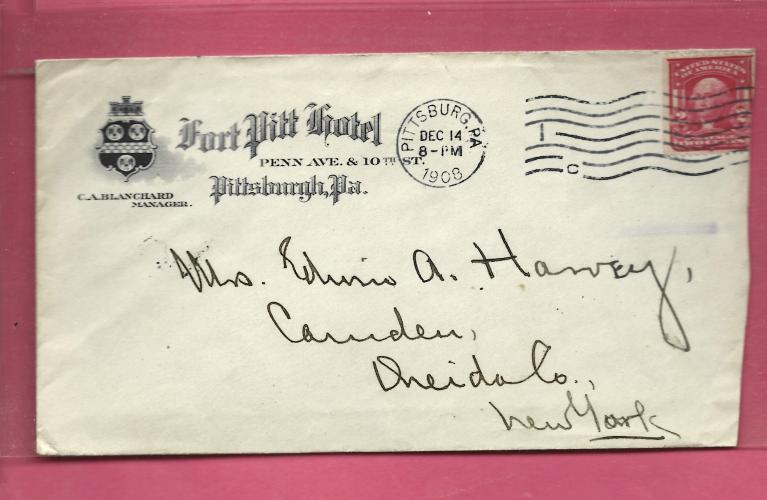 Fort Pitt Hotel
PENN AVE. & 10TH ST.
Pittsburgh, Pa.
C.A. BLANCHARD
MANAGER.
PITTSBURG, PA
DEC 14
8-PM
1908
1
C
UNITED STATES
OF AMERICA
2 2
TWO CENTS
Mrs. Edwin A. Harvey,
Camden,
Oneida Co.,
New York